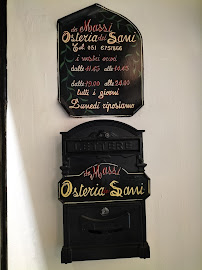 da Massi
Osteria dei Sani
Tel. 051 6751666
i nostri orari
dalle 11.45 alle 14.45
dalle 19.00 alle 24.00
tutti i giorni
Lunedì riposiamo
LETTERE
da Massi
Osteria Sani